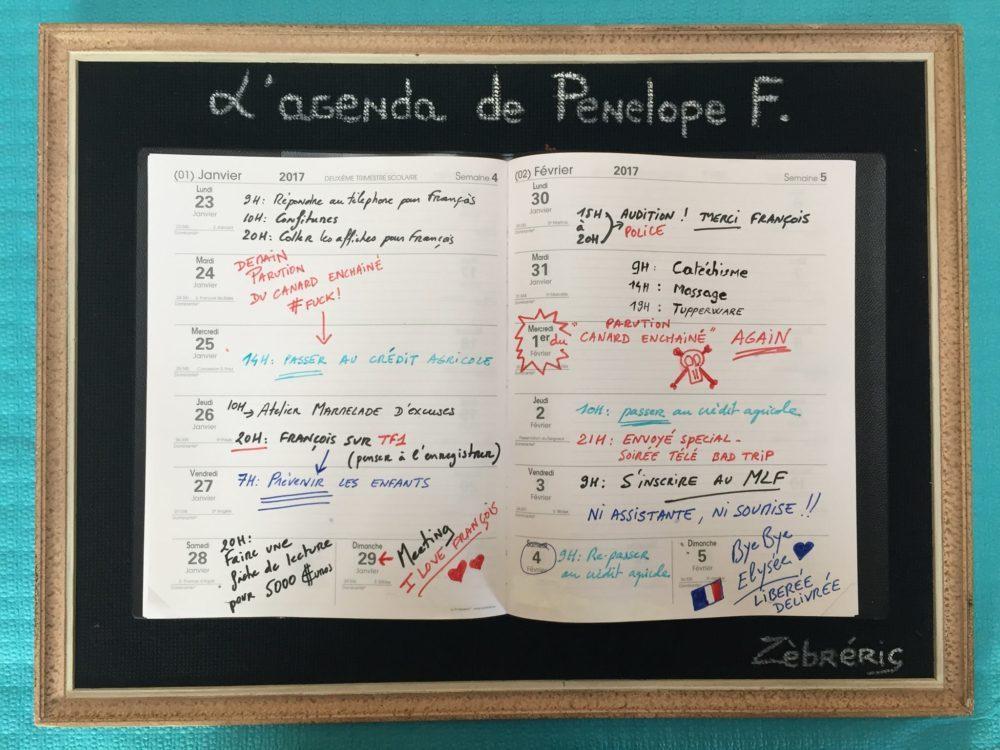 L'agenda de Penelope F.
(01) Janvier 2017 DEUXIÈME TRIMESTRE SCOLAIRE Semaine 4
Lundi
23
Janvier
9H: Répondre au téléphone pour François
10H: Confitures
20H: Coller les affiches pour François
Mardi
24
Janvier
DEMAIN
PARUTION
DU CANARD ENCHAINÉ
# FUCK!
Mercredi
25
Janvier
14H: PASSER AU CRÉDIT AGRICOLE
Jeudi
26
Janvier
10H → Atelier MARMELADE D'EXCUSES
20H: FRANÇOIS SUR TF1
(penser à l'enregistrer)
Vendredi
27
Janvier
7H: PRÉVENIR LES ENFANTS
Samedi
28
Janvier
20H:
Faire une
fiche de lecture
pour 5000 €uros
Dimanche
29
Janvier
Meeting
I LOVE FRANÇOIS
(02) Février 2017 Semaine 5
Lundi
30
Janvier
15H
à
20H
AUDITION ! MERCI FRANÇOIS
POLICE
Mardi
31
Janvier
9H: Catéchisme
14H: Massage
19H: TUPPERWARE
Mercredi
1er
Février
du "PARUTION
CANARD ENCHAINÉ" AGAIN
Jeudi
2
Février
10H: passer au crédit agricole
21H: ENVOYÉ SPECIAL -
SOIRÉE TÉLÉ BAD TRIP
Vendredi
3
Février
9H: S'INSCRIRE AU MLF
NI ASSISTANTE, NI SOUMISE !!
Samedi
4
Février
9H: Re-passer
au crédit agricole
Dimanche
5
Février
Bye Bye
Elysée
LIBERÉE
DELIVRÉE
Zèbréris